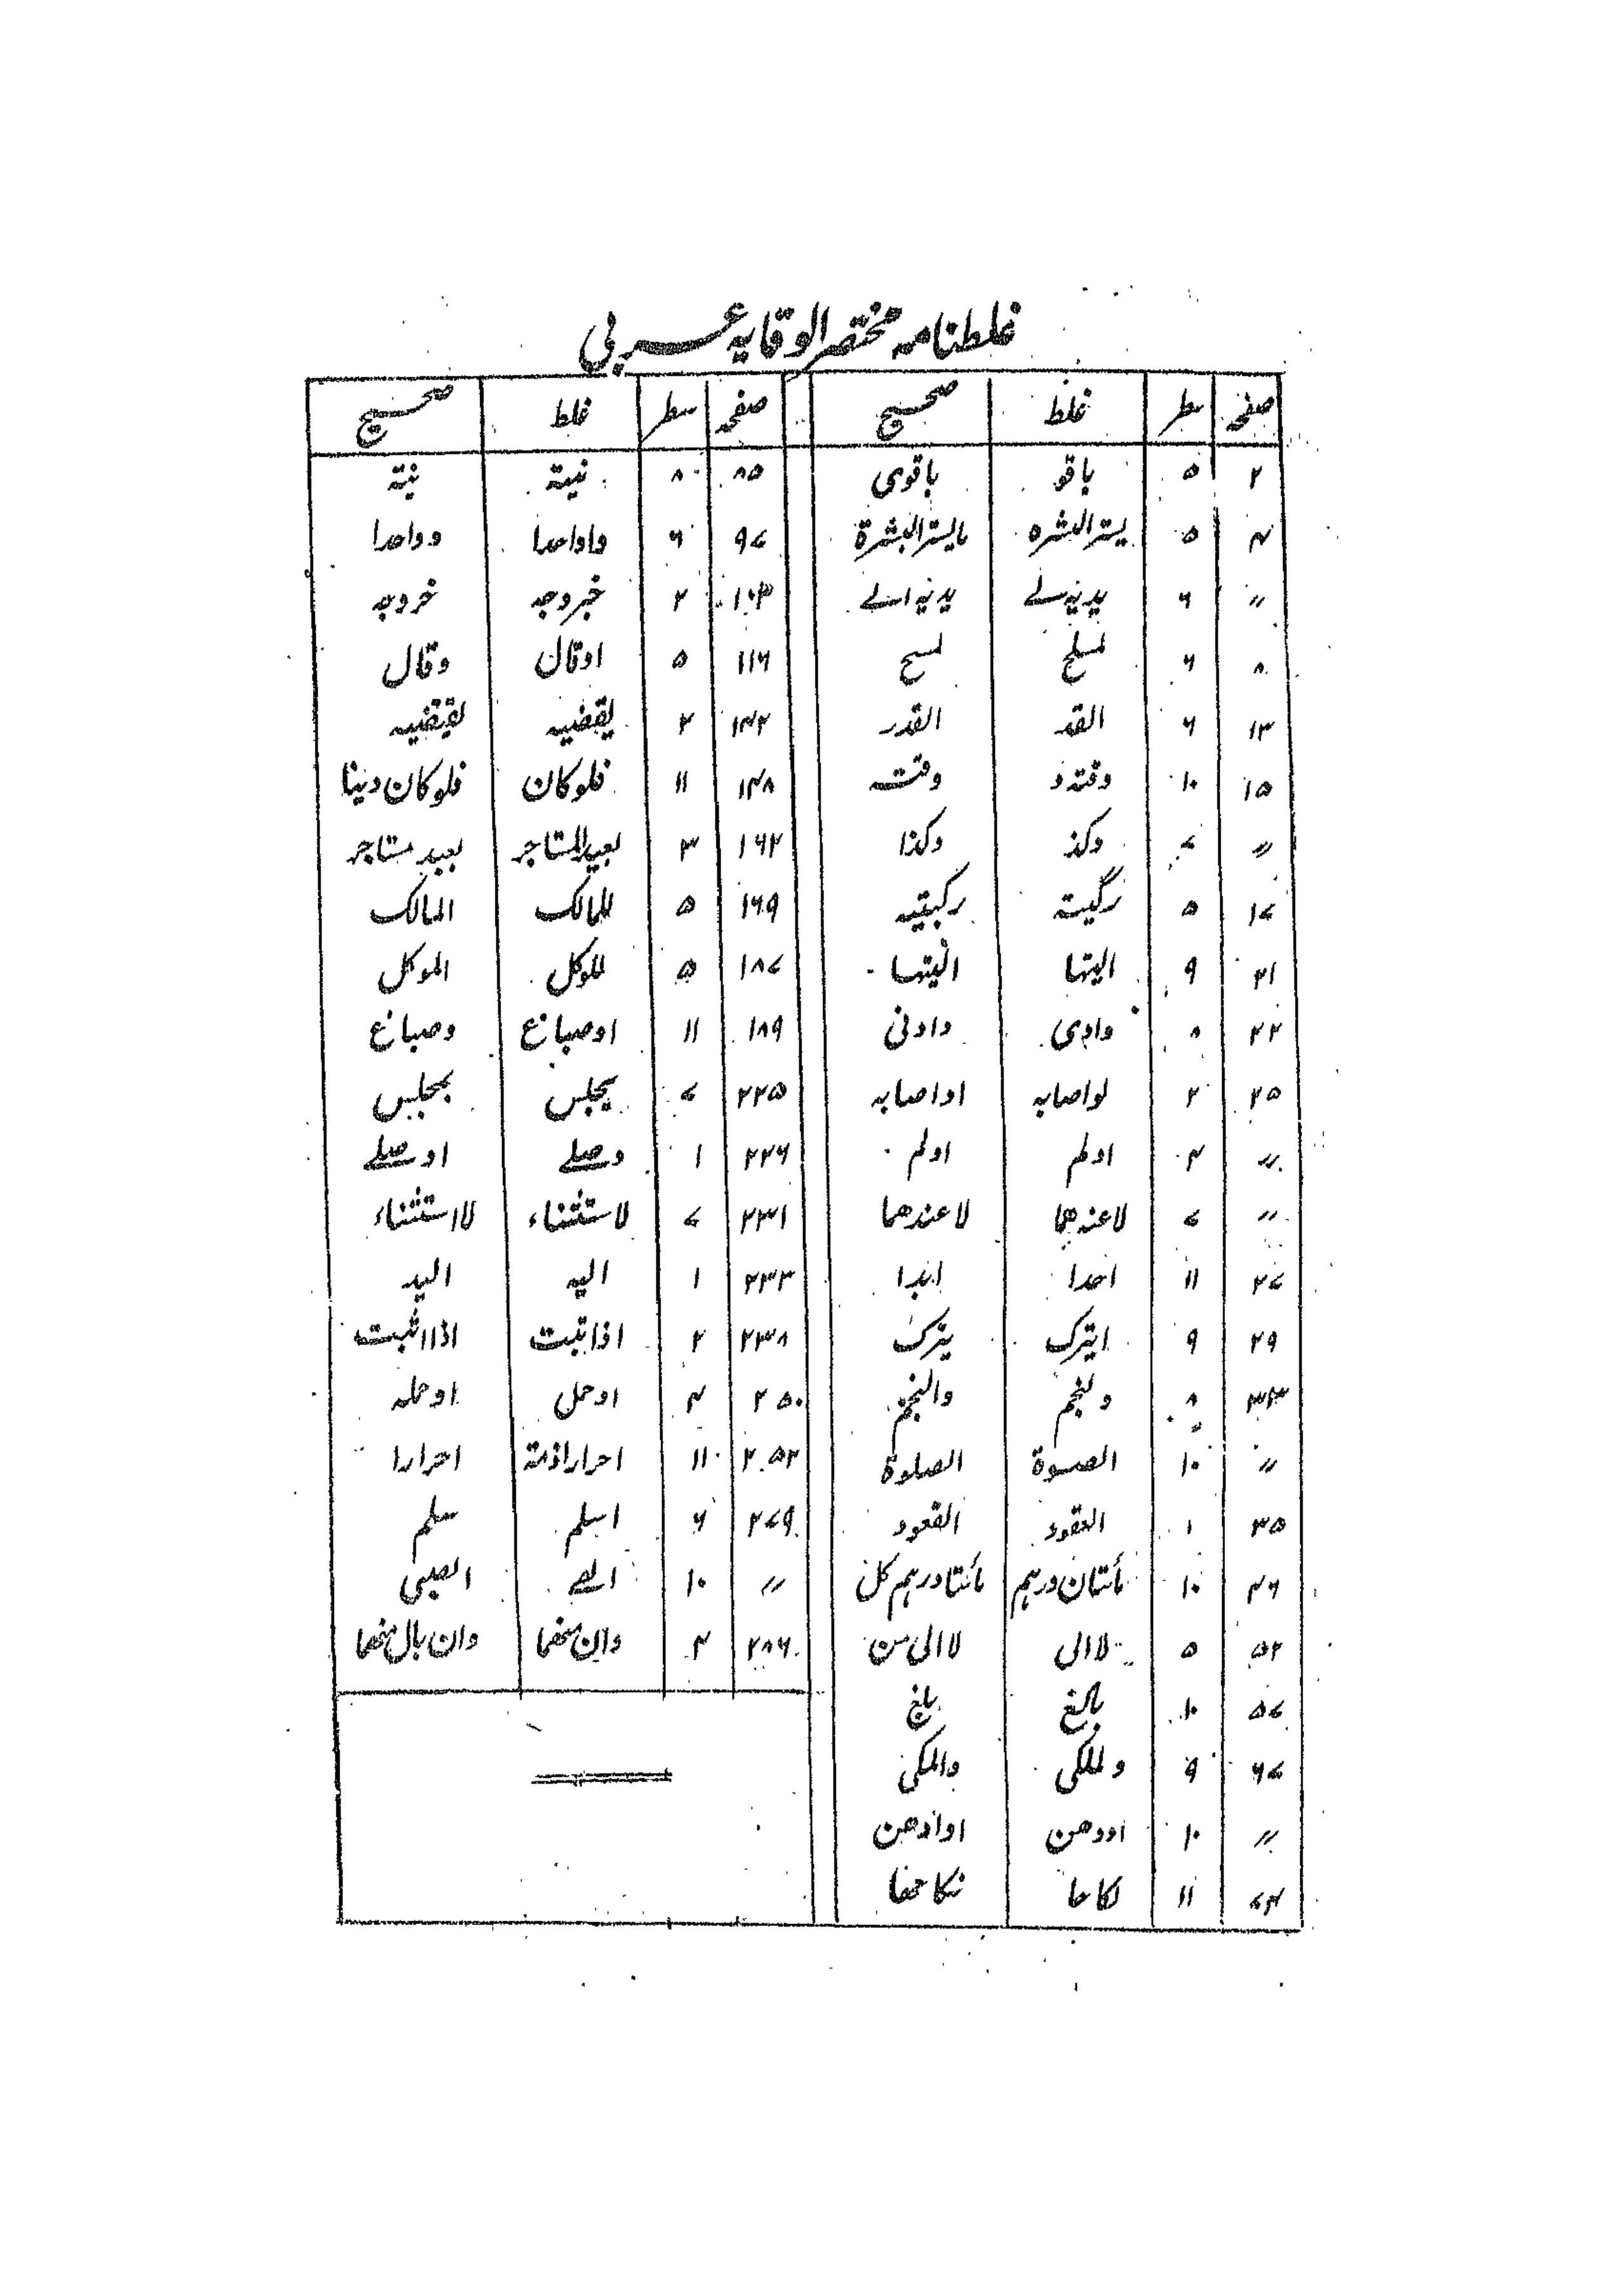 غلطنامہ مختصر الوقایہ عربی
صفحہ سطر غلط صحیح
۲ ۵ باقو باقوی
۴ ۵ یسترالعشرہ مایسترالبشرة
〃 ۶ یدنیہ لے یدنیہ الے
۸ ۶ لمسلح لمسح
۱۳ ۶ القد القدر
۱۵ ۱۰ وقتہ و وقتہ
〃 ۷ وکذ وکذا
۱۷ ۵ رکبیتہ رکبتیہ
۲۱ ۹ الیتہا الیتہا
۲۲ ۸ وادی وادنی
۲۵ ۲ لواصابہ اواصابہ
〃 ۴ اولم اولم
〃 ۷ لاعندھما لاعندھما
۲۷ ۱۱ احدا ابدا
۲۹ ۹ ایترک یترک
۳۳ ۸ ولنجم والنجم
〃 ۱۰ الصسوة الصلوة
۳۵ ۱ العقود القعود
۴۶ ۱۰ مأئتان درہم مأئتا درہم کل
۵۲ ۵ لاالی لاالی من
۵۷ ۱۰ بالغ بلغ
۶۷ ۹ ولملکی والمکی
〃 ۱۰ اودھن اوادھن
۷۴ ۱۱ لکاحا نکاحھا
صفحہ سطر غلط صحیح
۸۵ ۸ نیتہ نیة
۹۷ ۶ واواحدا وواحدا
۱۰۳ ۲ خبروجہ خروجہ
۱۱۶ ۵ اوقال وقال
۱۴۲ ۲ یقضیہ یقتضیہ
۱۴۸ ۱۱ فلوکان فلوکان دینا
۱۶۲ ۳ بعیدالمستاجر بعبد مستاجر
۱۶۹ ۵ للمالک المالک
۱۸۷ ۵ للوکل الموکل
۱۸۹ ۱۱ اوصباغ وصباغ
۲۲۵ ۷ یجلس بمجلس
۲۲۶ ۱ وصلے اوصلے
۲۳۱ ۷ لاستثناء لااستثناء
۲۳۳ ۱ الیہ الید
۲۳۸ ۲ اذاتبت اذااثبت
۲۵۰ ۴ اوحمل اوحملہ
۲۵۲ ۱۱ احراراذمتہ احرارا
۲۷۹ ۶ اسلم سلم
〃 ۱۰ الصے الصبی
۲۸۶ ۴ وان منھما وان بال منھما